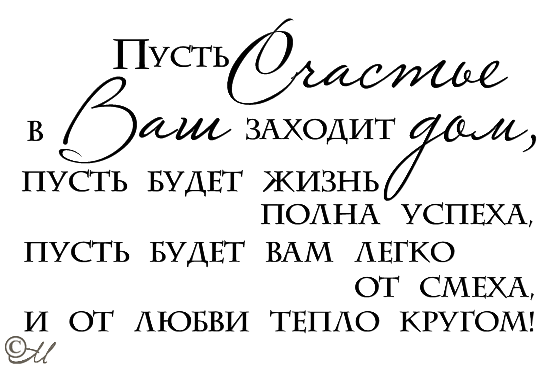 Пусть Счастье
в Ваш заходит дом,
пусть будет жизнь
полна успеха,
пусть будет вам легко
от смеха,
и от любви тепло кругом!
©М